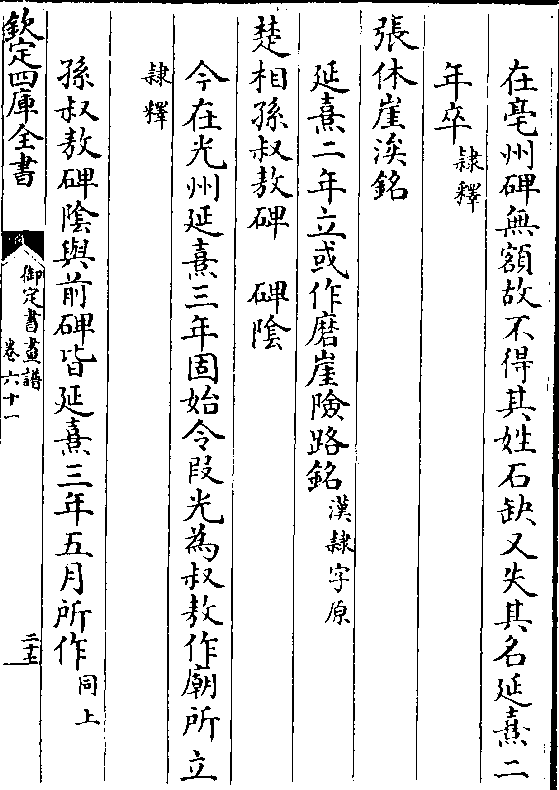 在亳州碑無額故不得其姓石缺又失其名延熹二
年卒隸釋
張休崖涘銘
延熹二年立或作磨崖險路銘漢隸字原
楚相孫叔敖碑　碑陰
今在光州延熹三年固始令段光為叔敖作廟所立
隸釋
孫叔敖碑陰與前碑皆延熹三年五月所作同上
欽定四庫全書
御定書畫譜
卷六十一
二十七